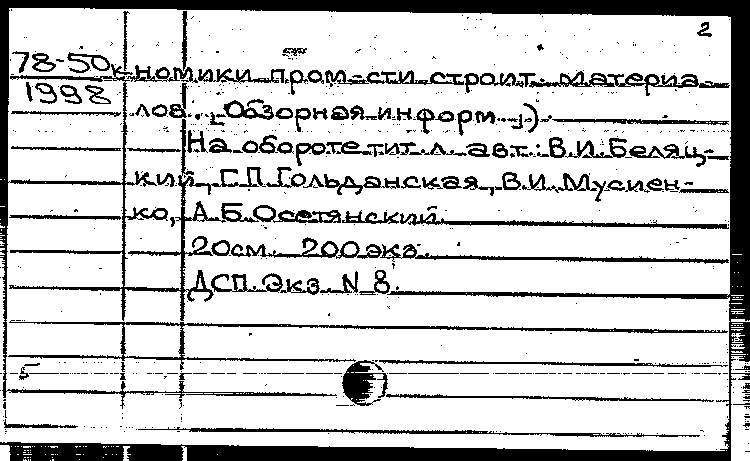 2
78-50к номики пром-сти строит. материа-
1998 лов. [Обзорная информ.]).
На обороте тит. л. авт.: В.И. Беляц-
кий, Г.П. Гольданская, В.И. Мусиен-
ко, А.Б. Осетянский.
20см. 200экз.
ДСП. Экз. N 8.
Б